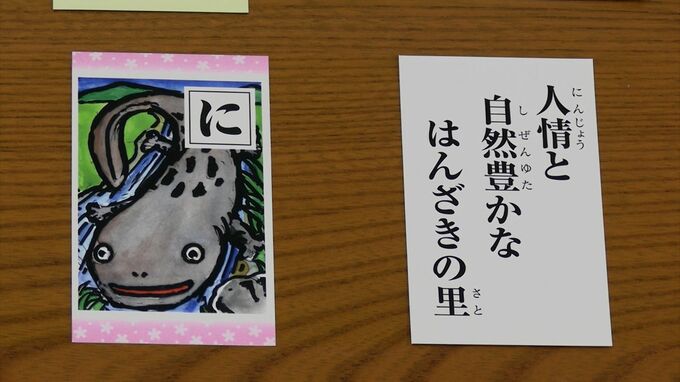 に
人情と
にんじょう
自然豊かな
しぜんゆた
はんざきの里
さと